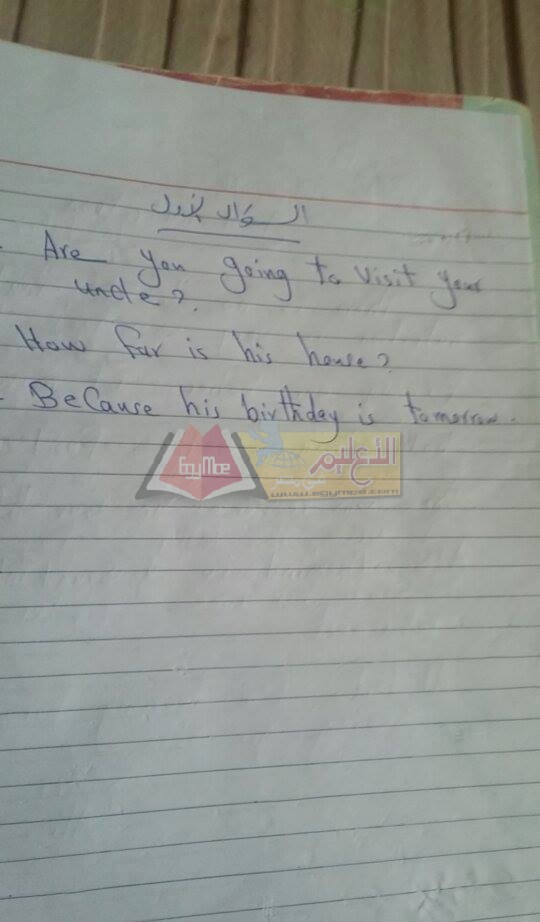 السؤال الأول
- Are you going to visit your
uncle?
How far is his house?
- Because his birthday is tomorrow.
EgyMce
التعليم
في مصر
www.egymce.com